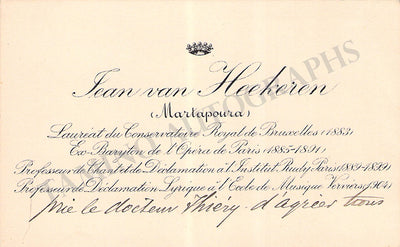 Jean van Heekeren
(Martapoura)
Lauréat du Conservatoire Royal de Bruxelles (1883)
Ex-Baryton de l'Opéra de Paris (1885-1891)
Professeur de Chant et de Déclamation à l'Institut Rudy Paris (1891-1899)
Professeur de Déclamation Lyrique à l'Ecole de Musique Verviers (1904)
prie le docteur Thiéry d'agréer
AUTOGRAPHS